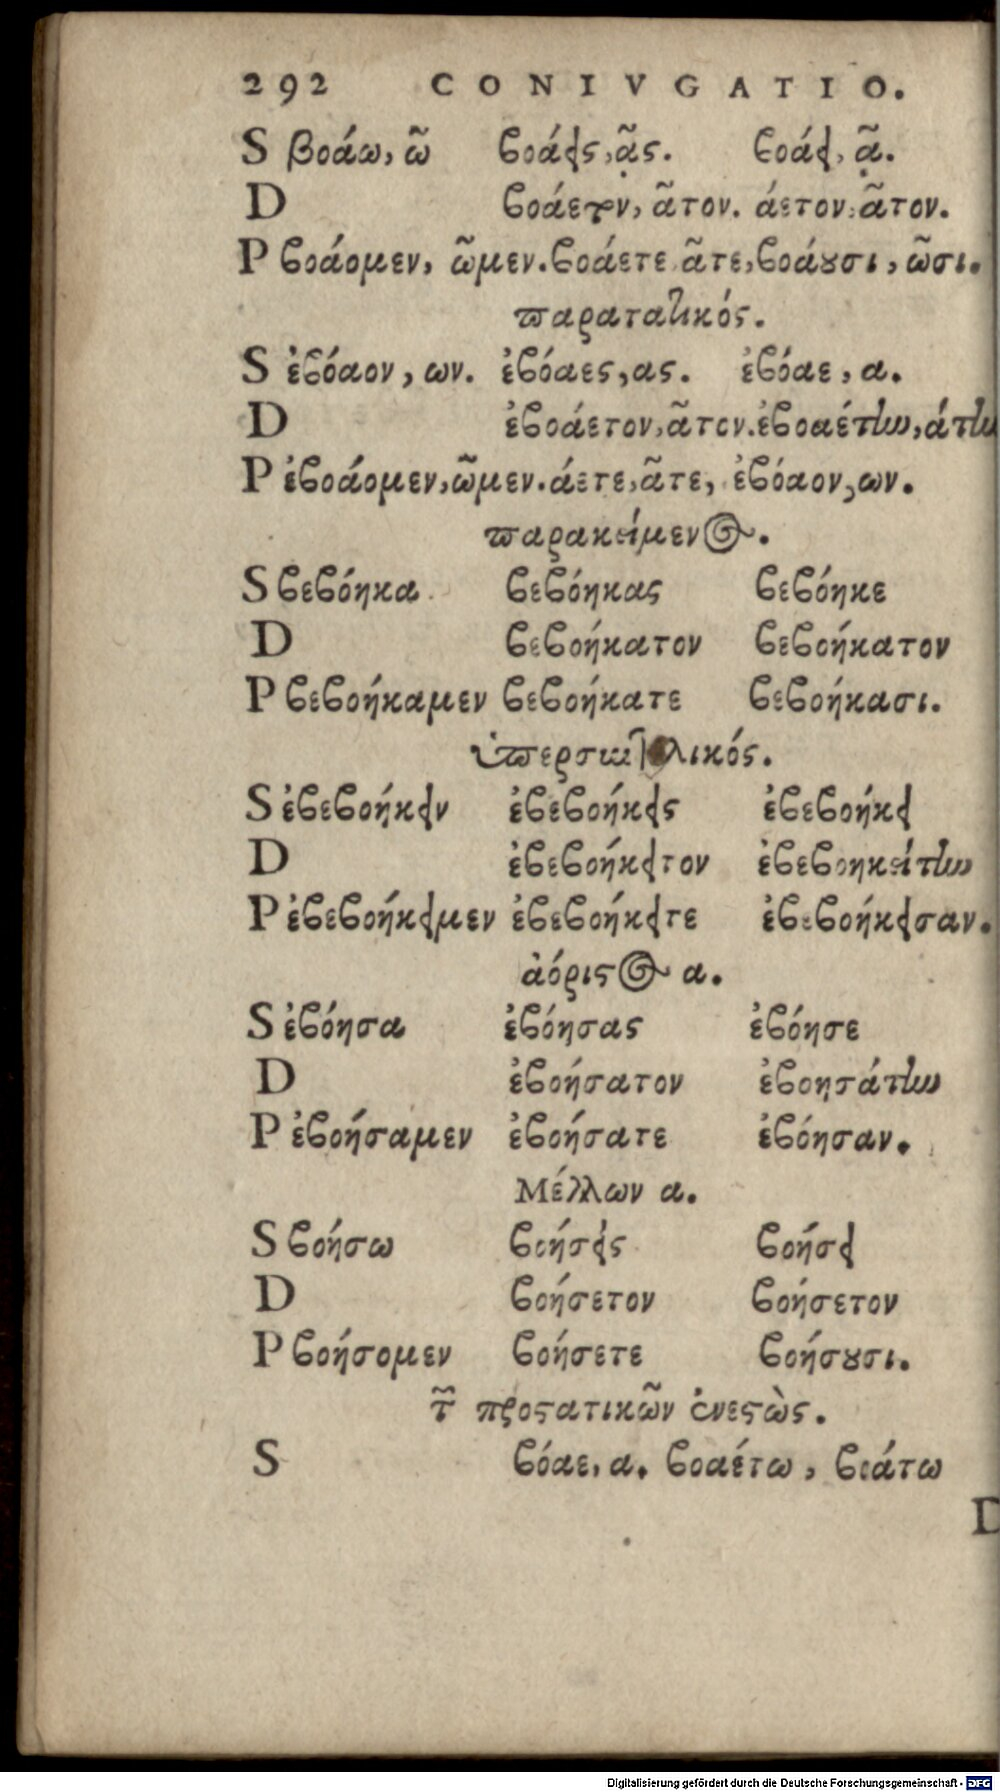 292 CONIVGATIO.
S βοάω, ῶ ϐοάεις, ᾷς. ϐοάει, ᾷ.
D ϐοάετον, ᾶτον. άετον, ᾶτον.
P ϐοάομεν, ῶμεν. ϐοάετε ᾶτε, ϐοάȣσι, ῶσι.
ϖαρατατικός.
S ἐϐόαον, ων. ἐϐόαες, ας. ἐϐόαε, α.
D ἐϐοάετον, ᾶτον. ἐϐοαέτην, άτην
P ἐϐοάομεν, ῶμεν. άετε, ᾶτε, ἐϐόαον, ων.
ϖαρακείμενος.
S ϐεϐόηκα ϐεϐόηκας ϐεϐόηκε
D ϐεϐοήκατον ϐεϐοήκατον
P ϐεϐοήκαμεν ϐεϐοήκατε ϐεϐοήκασι.
ὑϖερσυντελικός.
S ἐϐεϐοήκειν ἐϐεϐοήκεις ἐϐεϐοήκει
D ἐϐεϐοήκειτον ἐϐεϐοηκείτην
P ἐϐεϐοήκειμεν ἐϐεϐοήκειτε ἐϐεϐοήκεισαν.
ἀόριϛος α.
S ἐϐόησα ἐϐόησας ἐϐόησε
D ἐϐοήσατον ἐϐοησάτην
P ἐϐοήσαμεν ἐϐοήσατε ἐϐόησαν.
Μέλλων α.
S ϐοήσω ϐοήσεις ϐοήσει
D ϐοήσετον ϐοήσετον
P ϐοήσομεν ϐοήσετε ϐοήσȣσι.
τῶν προϛατικῶν ἐνεϛὼς.
S ϐόαε, α. ϐοαέτω, ϐοάτω
D
Digitalisierung gefördert durch die Deutsche Forschungsgemeinschaft - DFG